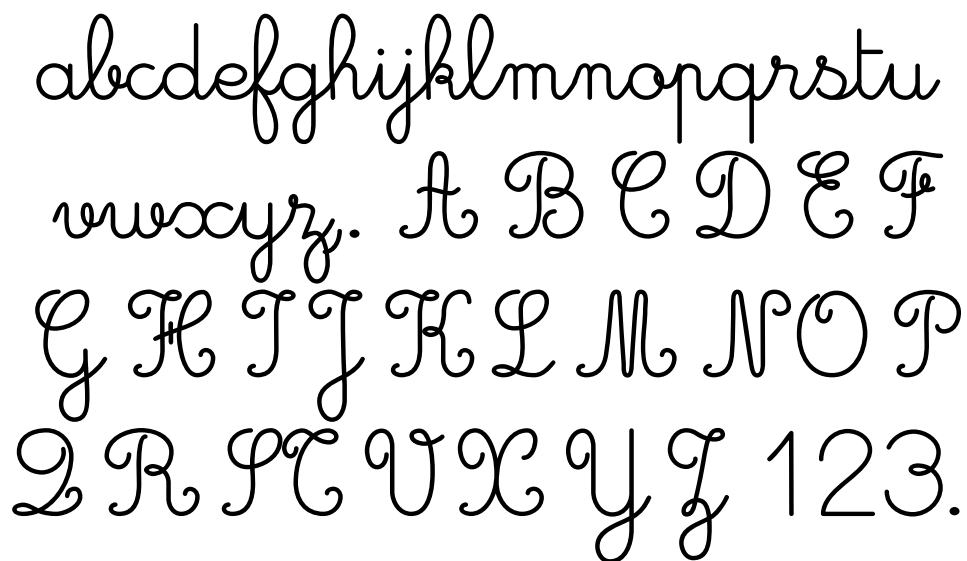 abcdefghijklmnopqrstu
vwxyz. A B C D E F
G H I J K L M N O P
Q R S T U X Y Z 123.